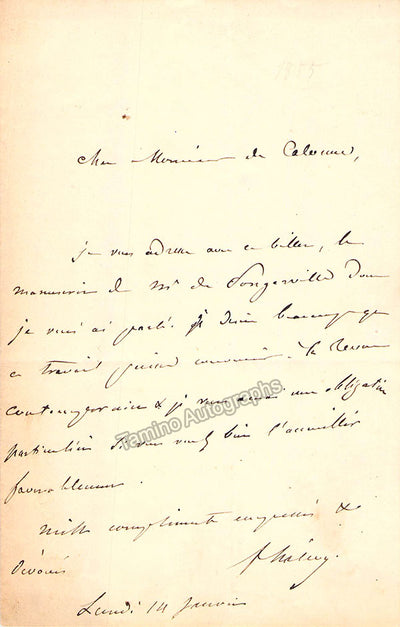 1855
cher Monsieur de Calonne,
je vous adresse avec ce billet, le
manuscrit de Mr de Pongerville dont
je vous ai parlé. je désire beaucoup que
ce travail puisse convenir à la Revue
contemporaine & je vous aurai une obligation
particulière si vous voulez bien l'accueillir
favorablement.
mille compliments empressés &
dévoués
fhalevy.
Lundi 14 Janvier
Tamino Autographs